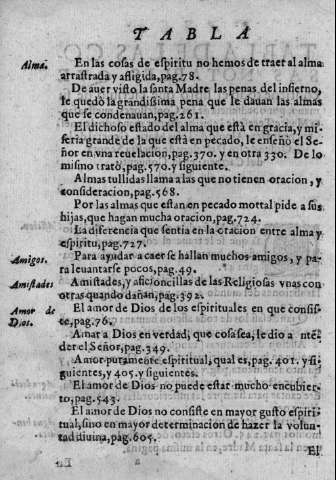 TABLA
Alma. En las cosas de espiritu no hemos de traer al alma
arrastrada y afligida, pag. 78.
De auer visto la santa Madre las penas del infierno,
le quedò la grandissima pena que le dauan las almas
que se condenauan, pag. 261.
El dichoso estado del alma que està en gracia, y mi-
seria grande de la que està en pecado, le enseñò el Se-
ñor en vna reuelacion, pag. 370. y en otra 330. De lo
mismo tratò, pag. 570. y siguiente.
Almas tullidas llama a las que no tienen oracion, y
consideracion, pag. 568.
Por las almas que estan en pecado mortal pide a sus
hijas, que hagan mucha oracion, pag. 724.
La diferencia que sentia en la oracion entre alma y
espiritu, pag. 727.
Amigos. Para ayudar a caer se hallan muchos amigos, y pa-
ra leuantarse pocos, pag. 49.
Amistades Amistades, y aficioncillas de las Religiosas vnas con
otras quando dañan, pag. 392.
Amor de El amor de Dios de los espirituales en que consis-
Dios. te, pag. 76.
Amar a Dios en verdad, que cosa sea, le dio a ntē-
der el Señor, pag. 349.
Amor puramente espiritual, qual es, pag. 401. y si-
guientes, y 405. y siguientes.
El amor de Dios no puede estar mucho encubier-
to, pag. 543.
El amor de Dios no consiste en mayor gusto espiri-
tual, sino en mayor determinacion de hazer la volun-
tad diuina, pag. 605.
El